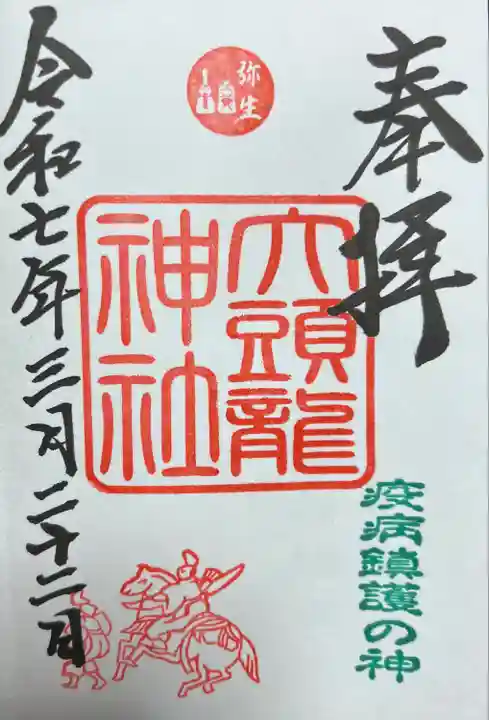 奉拝
弥生
六頭龍
神社
疫病鎮護の神
令和七年三月二十二日